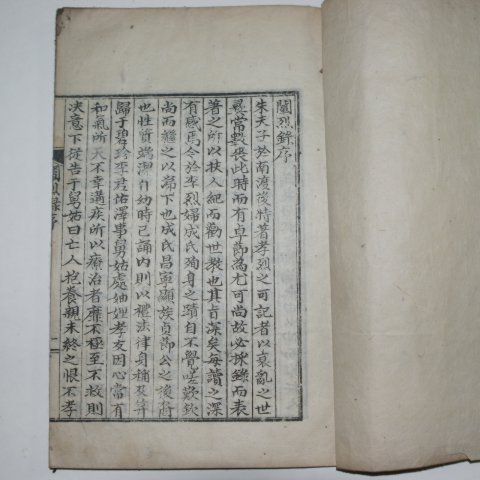 闡烈錄序
朱夫子於南渡後特著孝烈之可記者以衰亂之世
尋常數畏此時而有卓節為尤可尚故必採錄而表
著之所以扶人紀而勸世教也其旨深矣每讀之深
有感焉今於李烈婦成氏殉身之蹟自不覺嗟歎欽
尚而繼之以歸下也成氏昌寧顯族貞節公之後裔
也性質端潔自幼時已誦內則以禮法律身稱及笄
歸于碧珍李君佑澤事舅姑處妯娌孝友因心當有
和氣所天不幸遘疾所以療治者靡不極至不救則
決意下從告于舅姑曰亡人抱養親未終之恨不孝